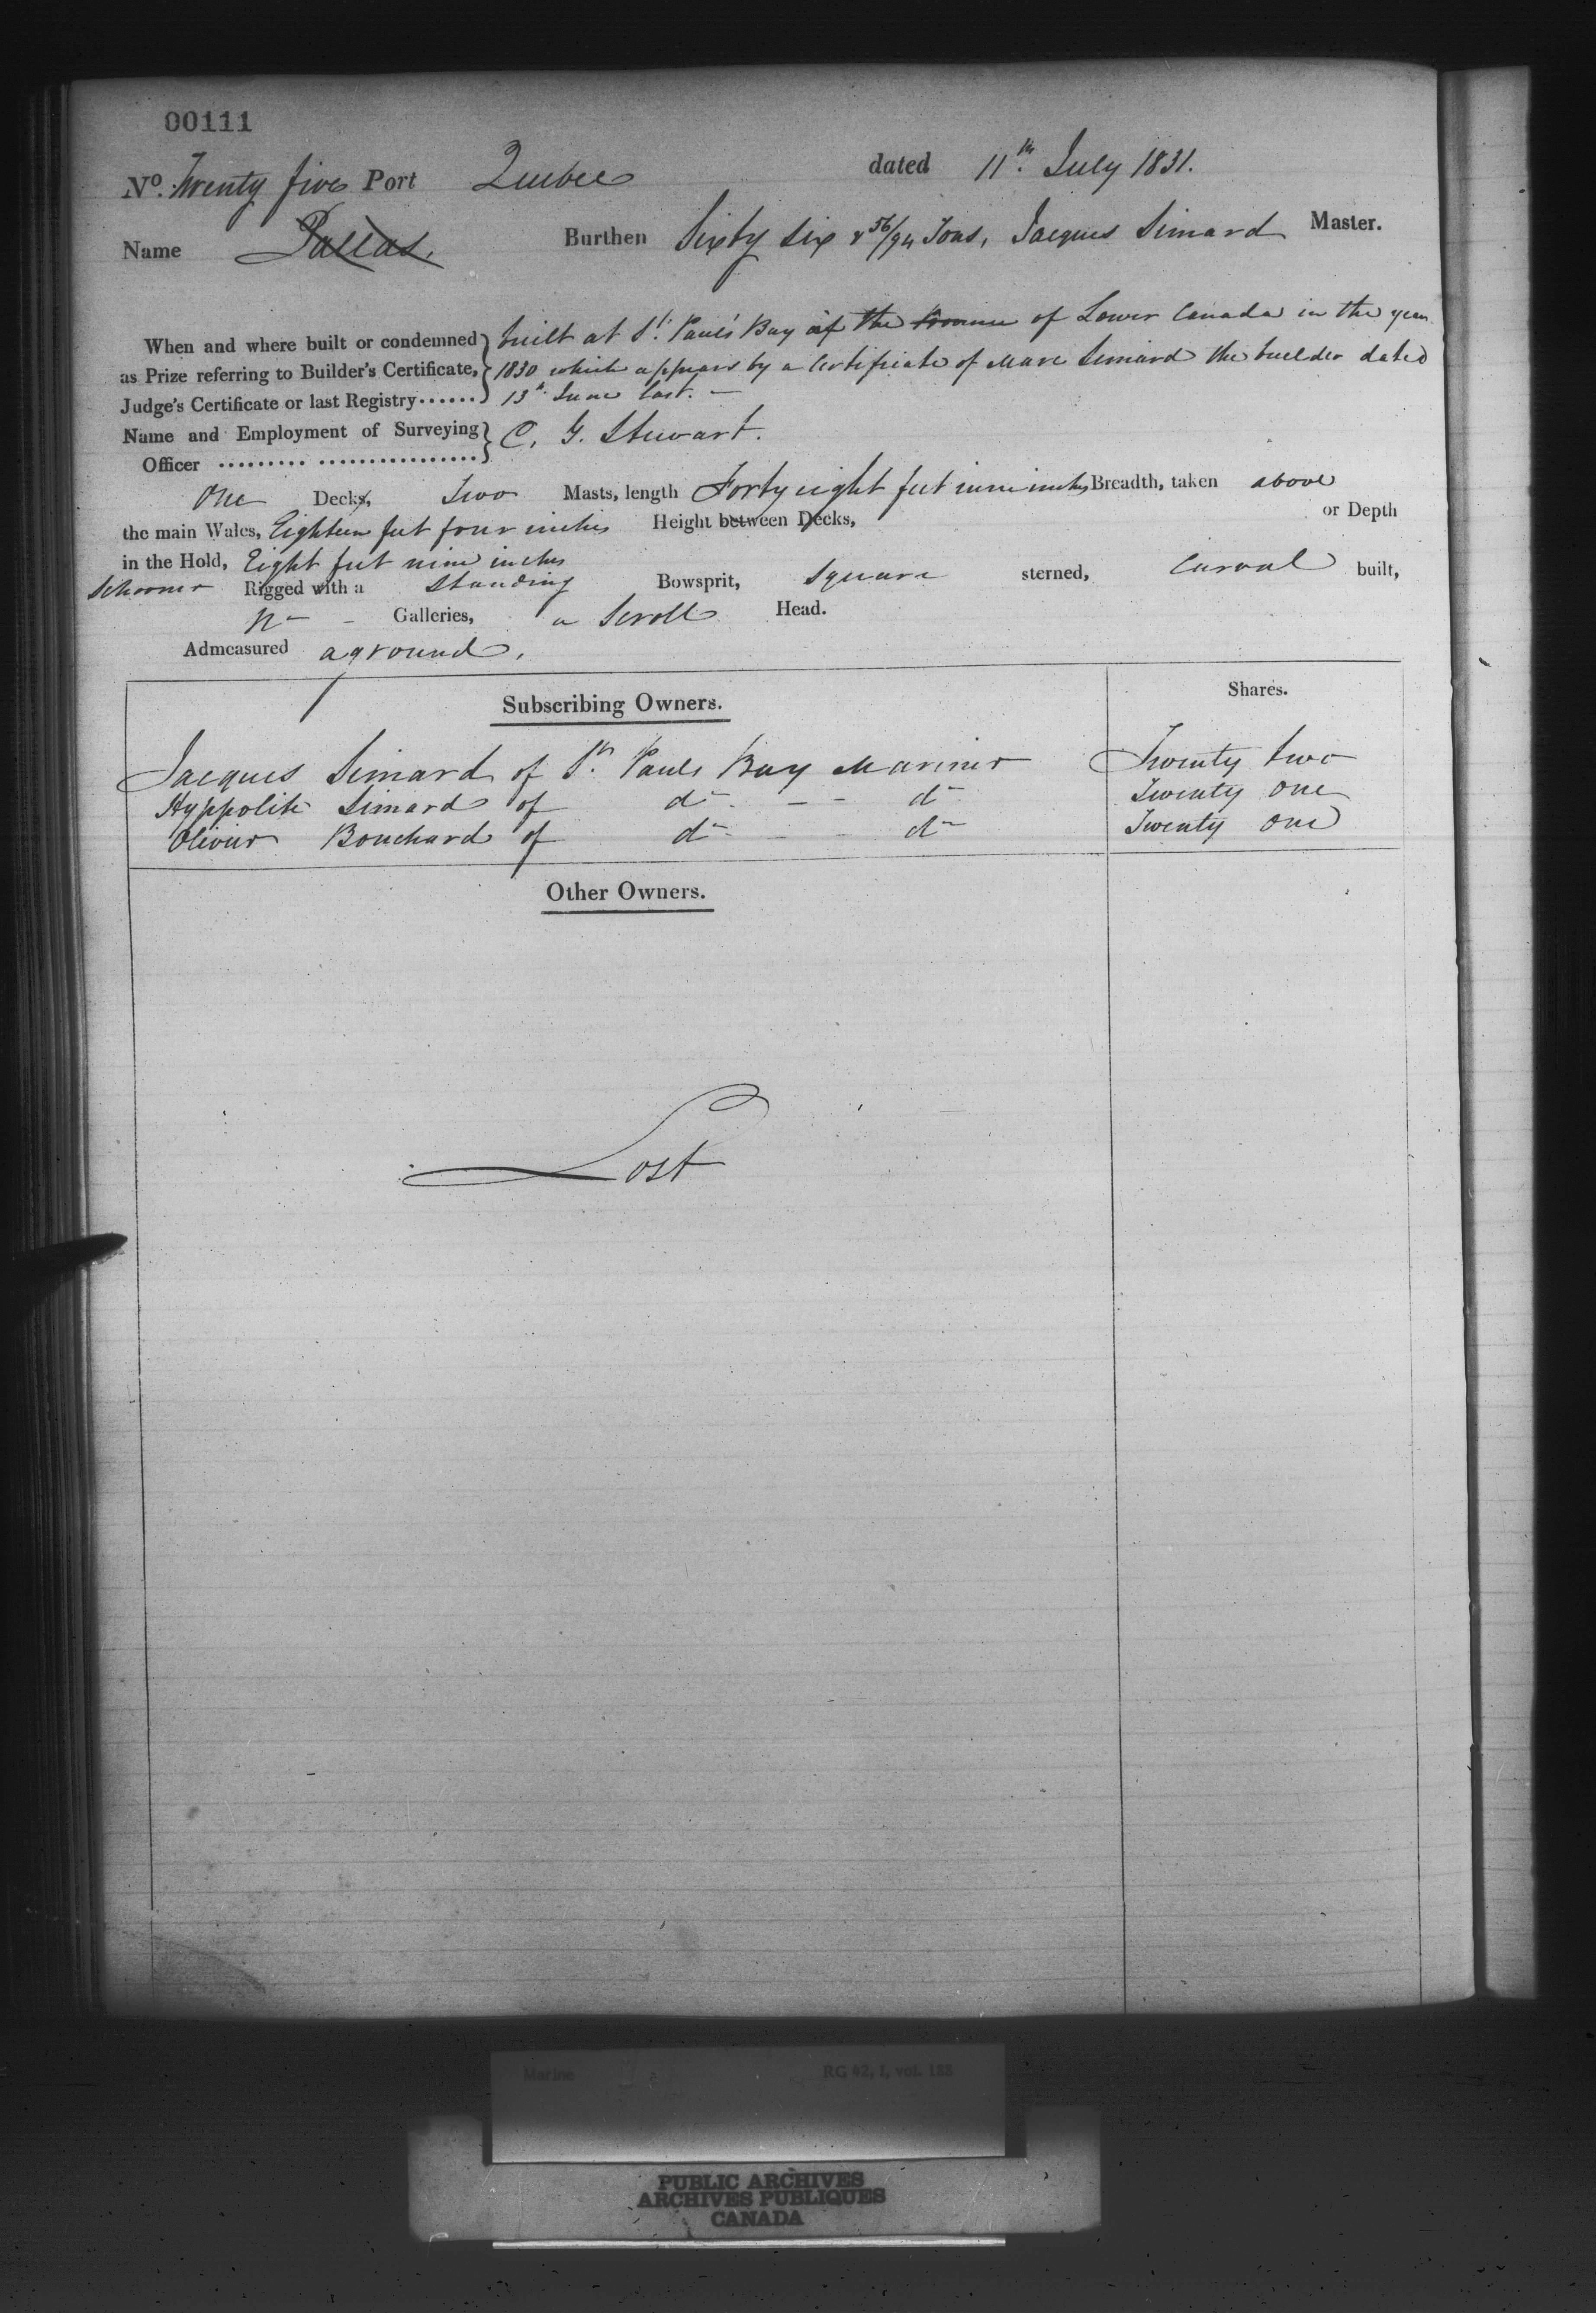 00111
No. Twenty five Port Quebec dated 11th July 1831.
Name Pallas. Burthen Sixty six & 56/94 Tons, Jacques Simard Master.
When and where built or condemned built at St. Paul's Bay of the Province of Lower Canada in the year
as Prize referring to Builder's Certificate, 1830 which appears by a Certificate of Marc Simard the builder dated
Judge's Certificate or last Registry...... 13th June last. —
Name and Employment of Surveying C. G. Stewart.
Officer ......... ................
One Decks, Two Masts, length Forty eight feet nine inches Breadth, taken above
the main Wales, Eighteen feet four inches Height between Decks, or Depth
in the Hold, Eight feet nine inches
Schooner Rigged with a Standing Bowsprit, Square sterned, Carval built,
No - Galleries, a Scroll Head.
Admeasured aground.
Subscribing Owners. Shares.
Jacques Simard of St. Pauls Bay Mariner Twenty two
Hyppolite Simard of do - - do Twenty one
Olivier Bouchard of do - - do Twenty one
Other Owners.
Lost
Marine RG 42, I, vol. 188
PUBLIC ARCHIVES
ARCHIVES PUBLIQUES
CANADA